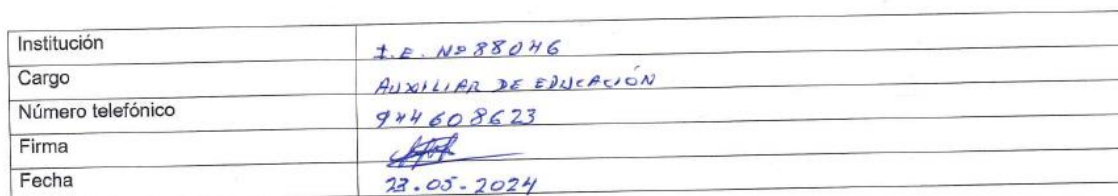 Institución I.E. Nº 88046
Cargo AUXILIAR DE EDUCACIÓN
Número telefónico 944608623
Firma
Fecha 23.05-2024